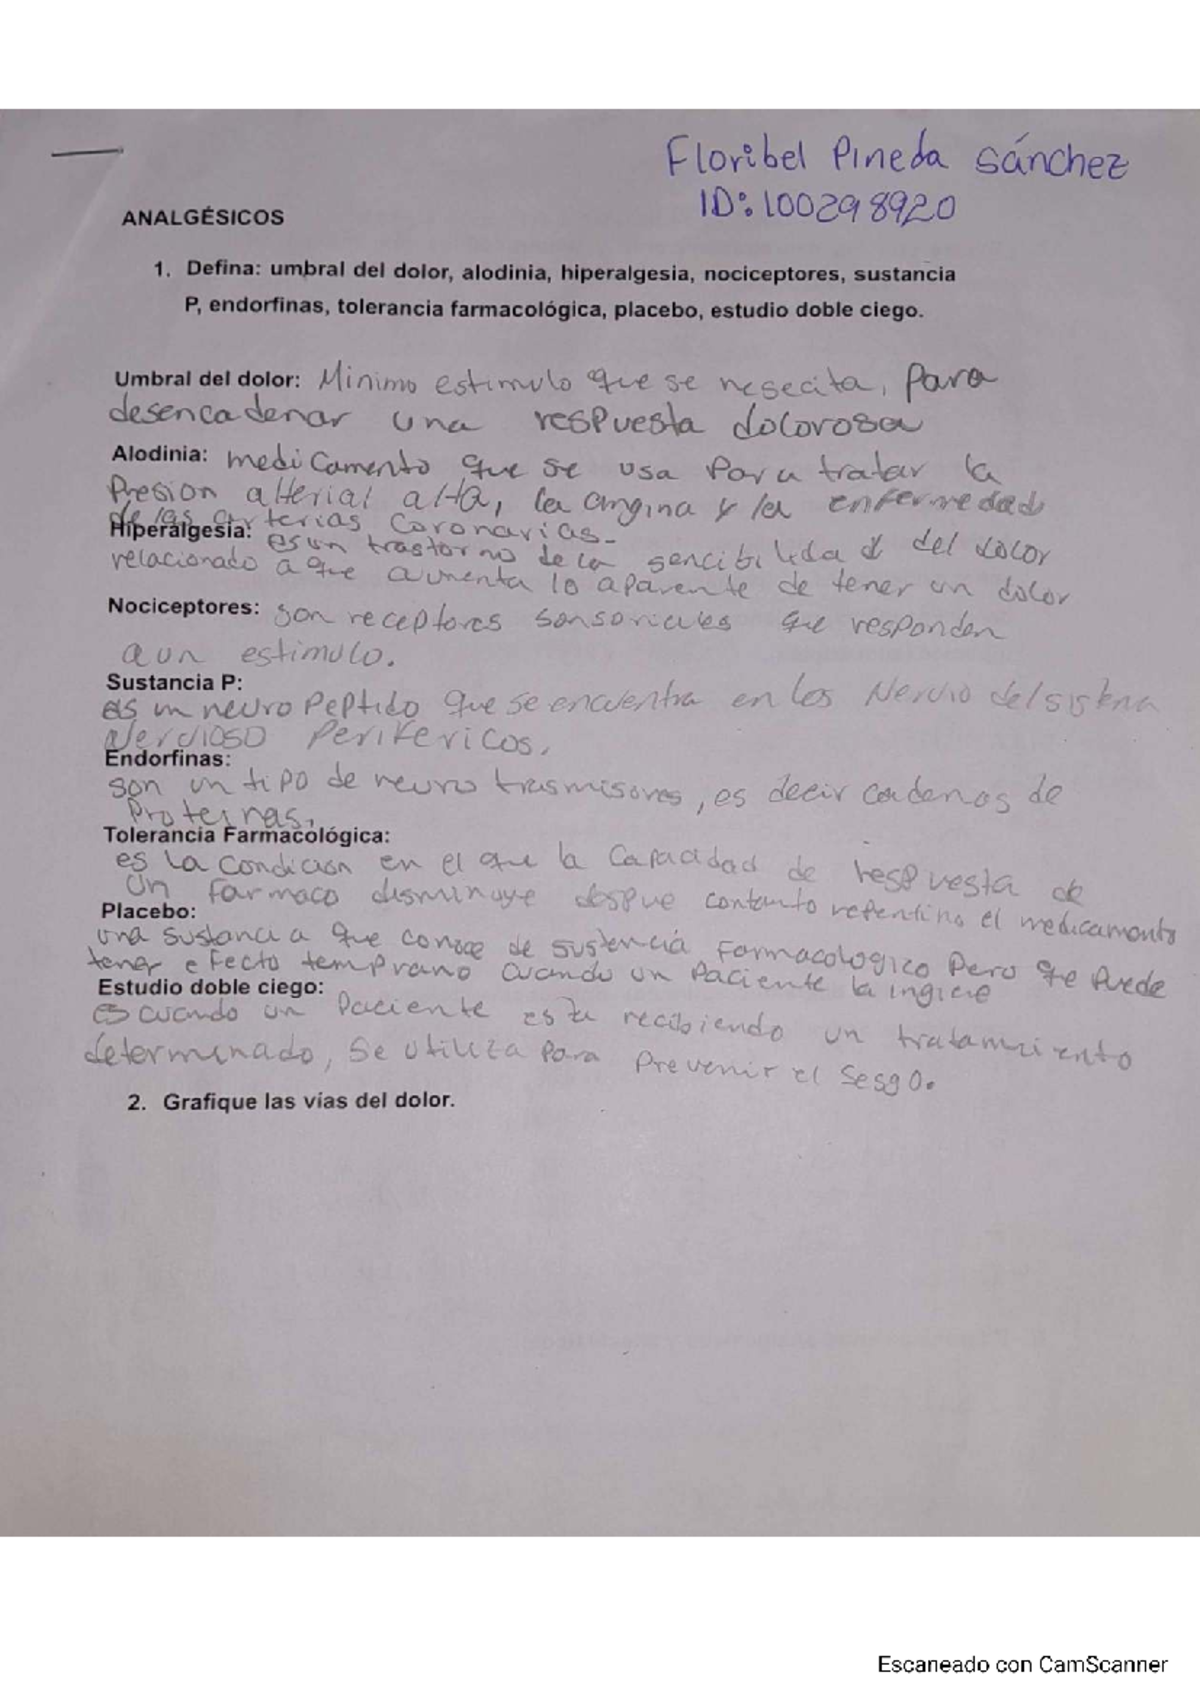 Floribel Pineda Sánchez
ID: 100298920
ANALGÉSICOS
1. Defina: umbral del dolor, alodinia, hiperalgesia, nociceptores, sustancia
P, endorfinas, tolerancia farmacológica, placebo, estudio doble ciego.
Umbral del dolor: Minimo estimulo que se nesecita, para
desencadenar una respuesta dolorosa
Alodinia: medicamento que se usa para tratar la
Presion alterial alta, la angina y la enfermedad
de las arterias coronarias.
Hiperalgesia: es un trastorno de la sencibilidad del dolor
relacionado a que aumenta lo aparente de tener un dolor
Nociceptores: son receptores sensoriales que responden
a un estimulo.
Sustancia P:
es un neuro Peptido que se encuentra en los Nervio del sistema
Nervioso Perifericos.
Endorfinas:
son un tipo de neuro trasmisores, es decir cadenas de
Proteinas.
Tolerancia Farmacológica:
es la condicion en el que la capacidad de respuesta de
un farmaco disminuye despue contanto repentino el medicamento
Placebo:
una sustancia que conoce de sustencia Farmacologico Pero que Puede
tener efecto temprano cuando un Paciente la ingiere
Estudio doble ciego:
es cuando un Paciente esta recibiendo un tratamiento
determinado, se utiliza para Prevenir el sesgo.
2. Grafique las vías del dolor.
Escaneado con CamScanner